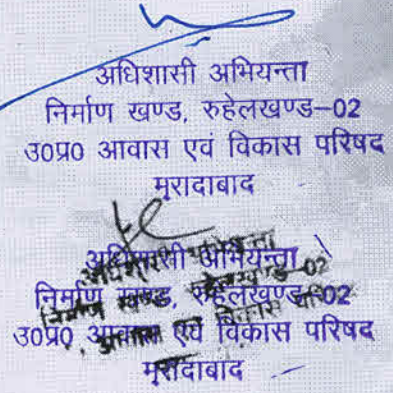 अधिशासी अभियन्ता
निर्माण खण्ड, रुहेलखण्ड–02
उ०प्र० आवास एवं विकास परिषद
मुरादाबाद
अधिशासी अभियन्ता
निर्माण खण्ड, रुहेलखण्ड–02
उ०प्र० आवास एवं विकास परिषद
मुरादाबाद